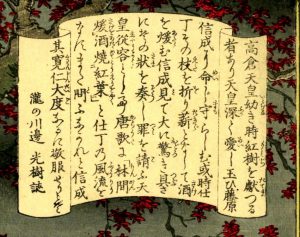 高倉天皇幼き時紅樹を獻つる
者あり天皇深く愛し玉ひ藤原
信成に命し守らしむ或時仕
丁その枝を折り薪となして酒
を煖む信成見て大に驚き具さ
にその状を奏し罪を請ふ天
皇従容として唐歌に林間
煖酒焼紅葉と仕丁乃風流を
信成
其寛仁大度なるに敬服せりとぞ
瀧の川邊 光樹誌